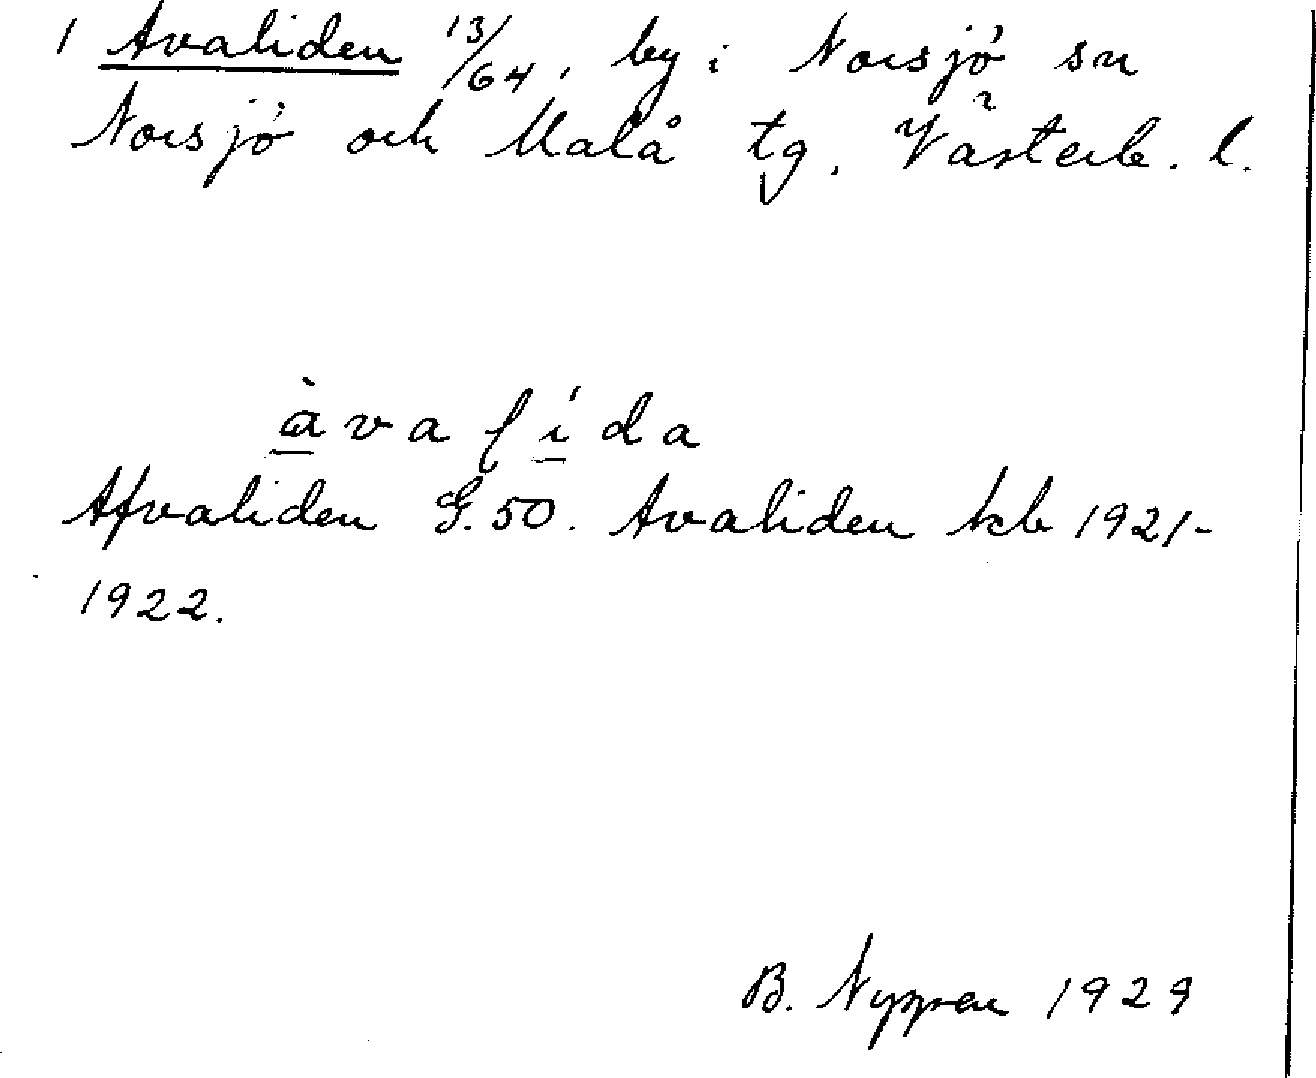 1 Avaliden 13/64, by i Norsjö sn
Norsjö och Malå tg, Västerb. l.
àvalída
Afvaliden G.50. Avaliden kb 1921-
1922.
B. 1929